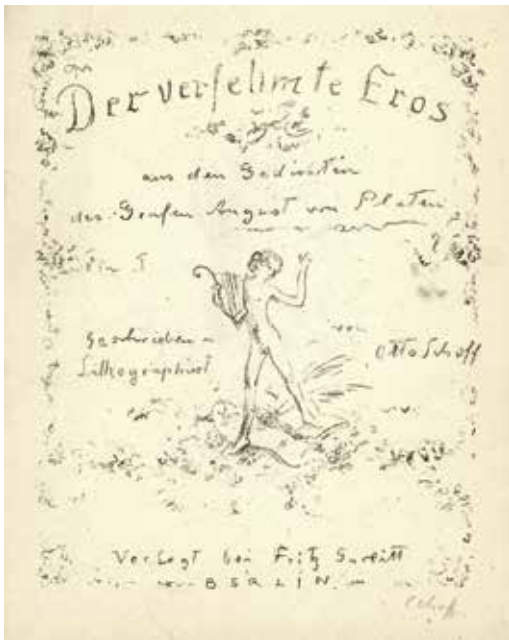 Der verfehmte Eros
aus den Gedichten
des Grafen August von Platen
Geschrieben u
von
Lithographiert
Otto Schoff
Verlegt bei Fritz Gurlitt
BERLIN
Schoff